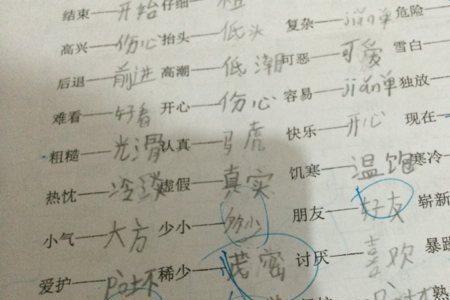 结束——开始 仔细——
高兴——伤心 抬头——低头 复杂——jiǎn单 危险——
后退——前进 高潮——低潮 可恶——可爱 雪白——
难看——好看 开心——伤心 容易——jiān单 独放——
粗糙——光滑 认真——马虎 快乐——开心 现在——
热忱——冷淡 虚假——真实 饥寒——温饱 寒冷——
小气——大方 少小—— 朋友——好友 崭新
爱护——pò坏 稀少——茂密 讨厌——喜欢 暴躁